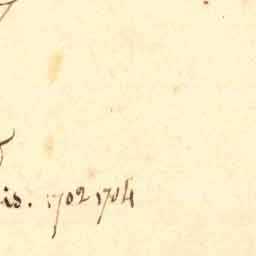 is. 1702 1704